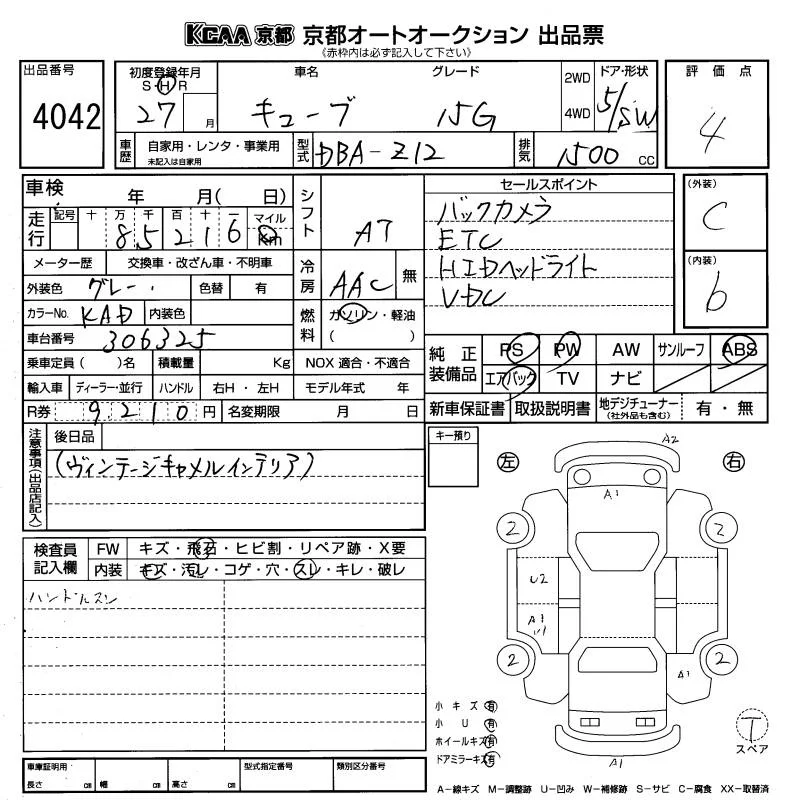 KCAA 京都 京都オートオークション 出品票
(赤枠内は必ず記入して下さい)
出品番号
4042
初度登録年月
S・H・R
27 月
車名
キューブ
グレード
15G
2WD
4WD
ドア・形状
5/SW
評価点
4
車歴
自家用・レンタ・事業用
未記入は自家用
型式
DBA-Z12
排気
1500 CC
車検
年 月( 日)
走行
記号 十 万 千 百 十 一 マイル
8 5 2 1 6 Km
シフト
AT
メーター歴
交換車・改ざん車・不明車
外装色
グレー
色替
有
カラーNo.
KAD
内装色
車台番号
306325
冷房
AAC
無
燃料
ガソリン・軽油
( )
乗車定員( )名
積載量
Kg
NOX 適合・不適合
輸入車
ディーラー・並行
ハンドル
右H・左H
モデル年式 年
R券
9,210円
名変期限
月 日
セールスポイント
バックカメラ
ETC
HIDヘッドライト
VDC
(外装)
C
(内装)
b
純正装備品
PS
PW
AW
サンルーフ
ABS
エアバック
TV
ナビ
新車保証書
取扱説明書
地デジチューナー
(社外品も含む)
有・無
注意事項(出品店記入)
後日品
(ヴィンテージキャメルインテリア)
検査員記入欄
FW
キズ・飛石・ヒビ割・リペア跡・X要
内装
キズ・汚レ・コゲ・穴・スレ・キレ・破レ
ハンドルスレ
キー預り
左
右
A2
A1
2
2
U2
A1
2
2
A1
A1
小キズ 有
小U 有
ホイールキズ 有
ドアミラーキズ 有
T
スペア
車庫証明用
長さ cm
幅 cm
高さ cm
型式指定番号
類別区分番号
A-線キズ M-調整跡 U-凹み W-補修跡 S-サビ C-腐食 XX-取替済